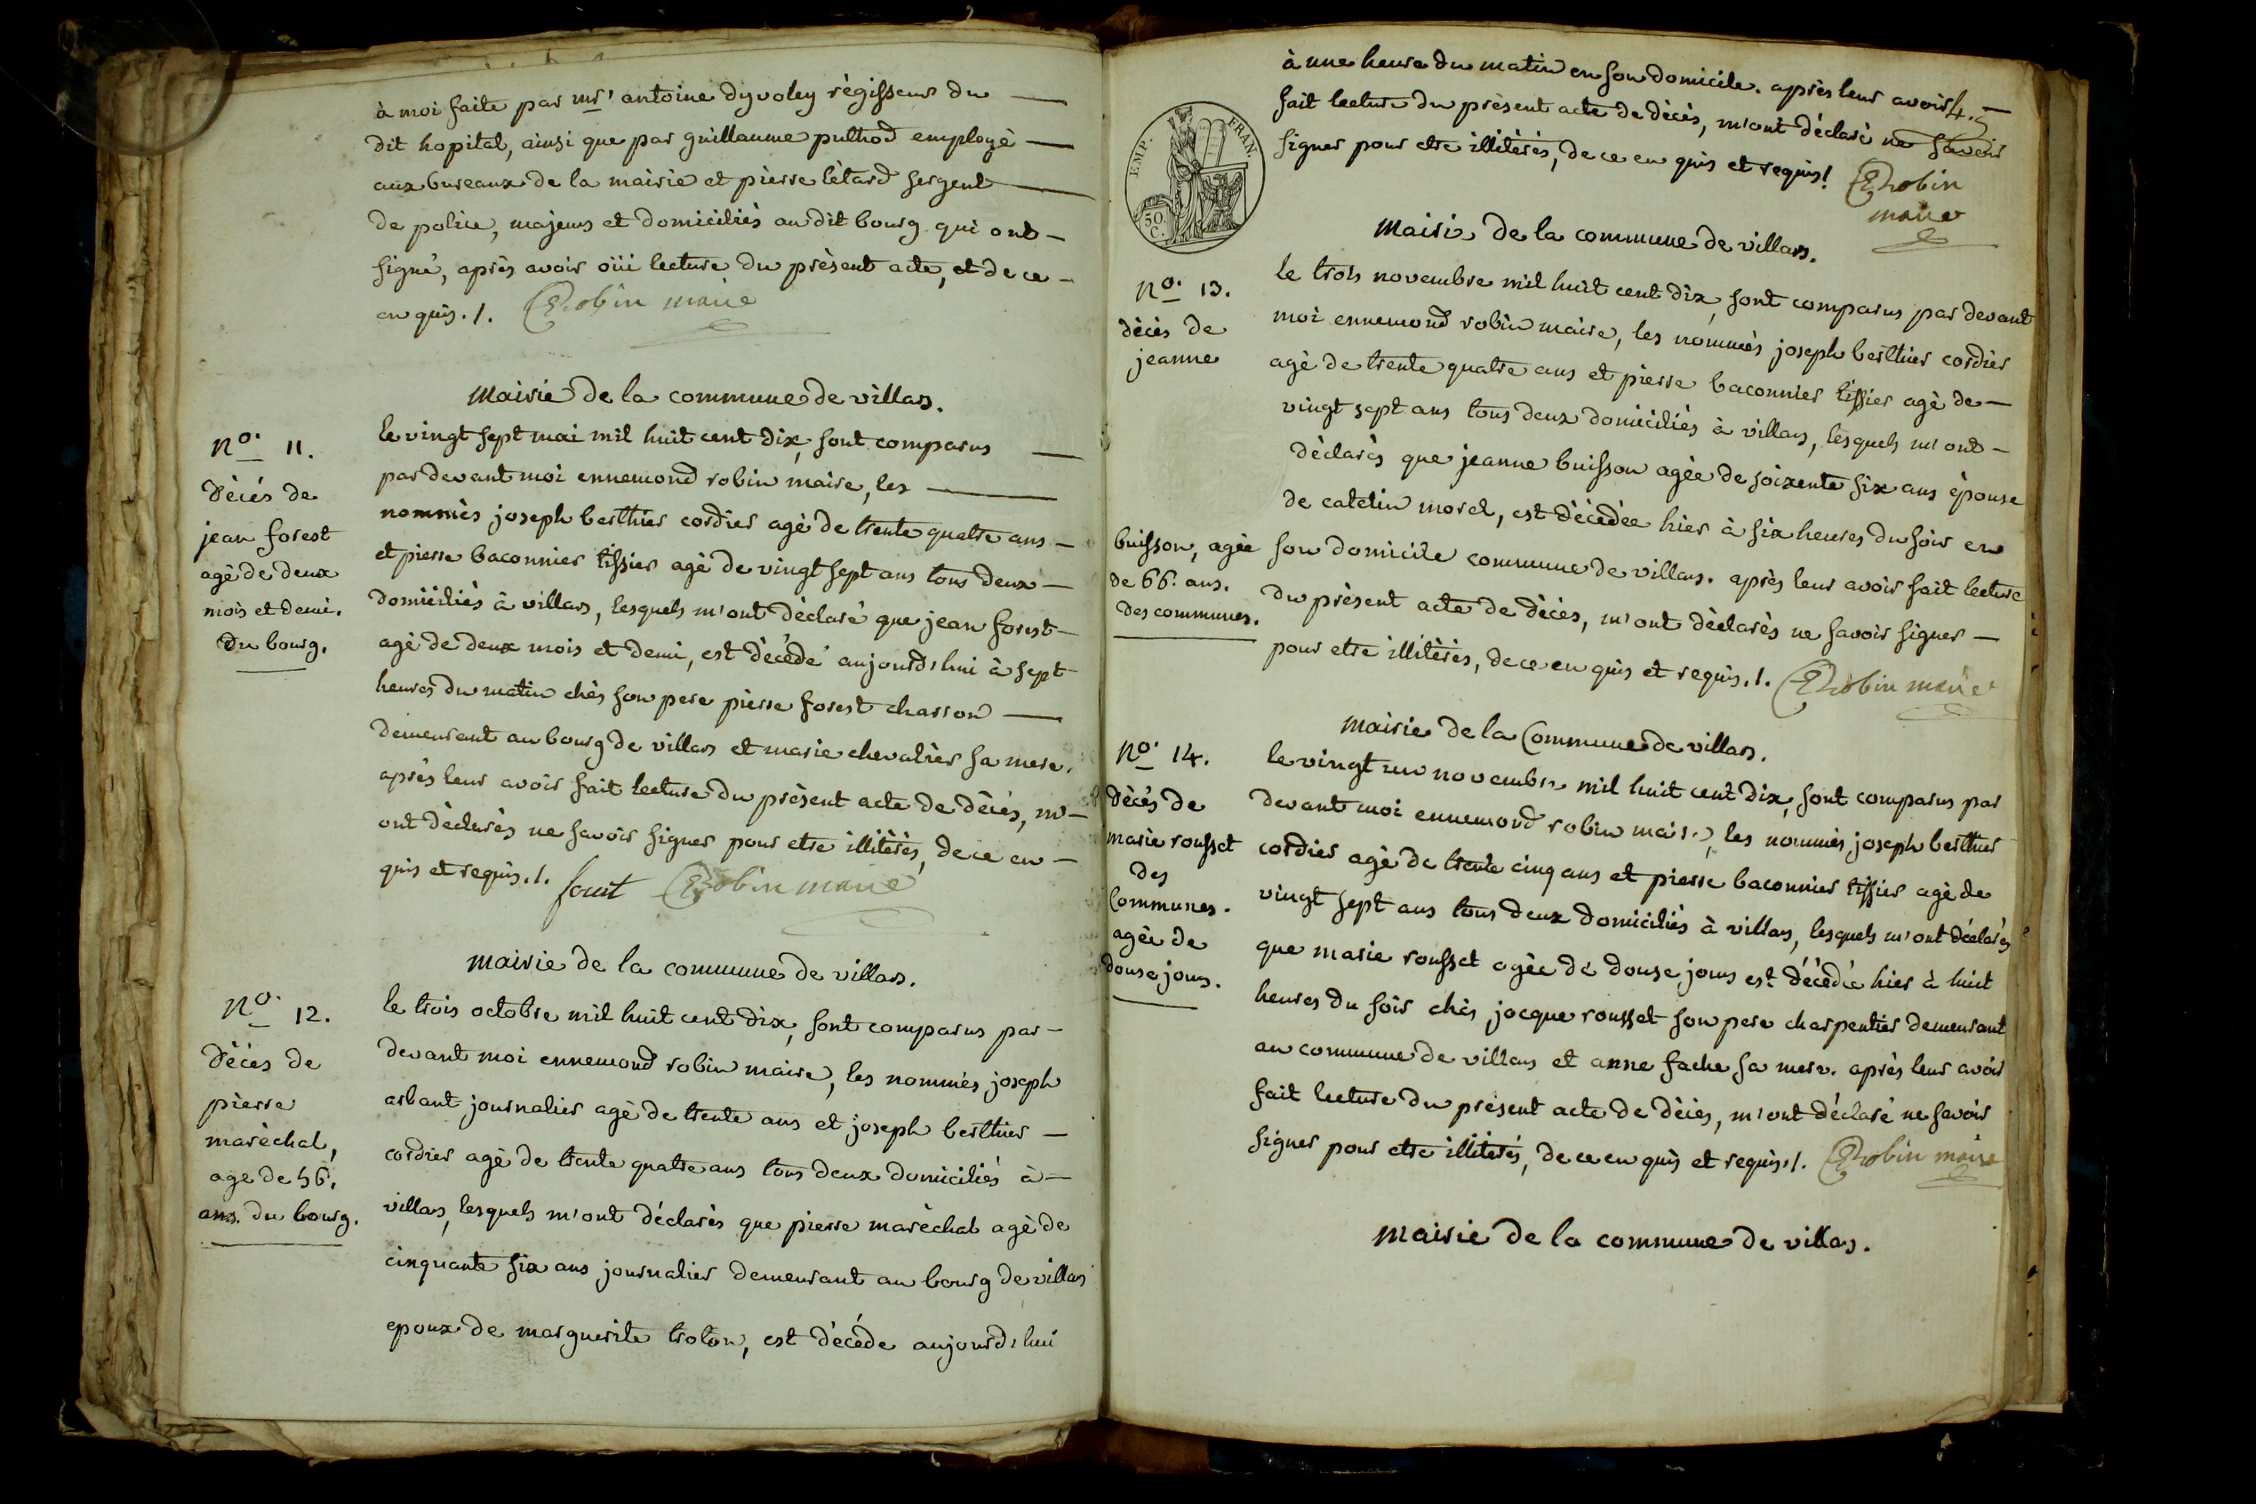 à moi faite par mr antoine dyvoley régisseur du
dit hopital, ainsi que par guillaume pulhod employé
aux bureaux de la mairie et pierre létard sergent
de police, majeurs et domiciliés au dit bourg qui ont
signé, après avoir oüi lecture du présent acte, et de ce
enquis ./. E Robin maire
Mairie de la commune de villars.
No. 11.
décés de
jean forest
agé de deux
mois et demi.
du bourg.
le vingt sept mai mil huit cent dix, sont comparus
pardevant moi ennemond robin maire, les
nommés joseph berthier cordier agé de trente quatre ans
et pierre baconnier tissier agé de vingt sept ans tous deux
domiciliés à villars, lesquels m'ont déclaré que jean forest
agé de deux mois et demi, est décédé aujourd'hui à sept
heures du matin chès son pere pierre forest charron
demeurant au bourg de villars et marie chevalier sa mere.
après leur avoir fait lecture du présent acte de décés, m'
ont déclarés ne savoir signer pour etre illitérés, de ce en
quis et requis ./. E Robin maire
Mairie de la commune de villars.
No. 12.
Décés de
pierre
maréchal,
age de 56.
ans. du bourg.
le trois octobre mil huit cent dix, sont comparus par
devant moi ennemond robin maire, les nommés joseph
arbant journalier agé de trente ans et joseph berthier
cordier agé de trente quatre ans tous deux domiciliés à
villars, lesquels m'ont déclarés que pierre maréchal agé de
cinquante six ans journalier demeurant au bourg de villars
epoux de marguerite troton, est décéde aujourd'hui
4.
à une heure du matin en son domicile. après leur avoir
fait lecture du présent acte de décés, m'ont déclaré ne savoir
signer pour etre illitérés, de ce en quis et requis! E Robin
maire
EMP. FRAN.
50.
C.
Mairie de la commune de villars.
No. 13.
décés de
jeanne
buisson, agée
de 66. ans.
des communes.
le trois novembre mil huit cent dix, sont comparus par devant
moi ennemond robin maire, les nommés joseph berthier cordier
agé de trente quatre ans et pierre baconnier tissier agé de
vingt sept ans tous deux domiciliés à villars, lesquels m'ont
déclarés que jeanne buisson agée de soixente six ans épouse
de catelin morel, est décédée hier à six heures du soir en
son domicile commune de villars. après leur avoir fait lecture
du présent acte de décés, m'ont déclarés ne savoir signer
pour etre illitérés, de ce en quis et requis ./. E Robin maire
Mairie de la Commune de villars.
No. 14.
Décés de
marie rousset
des
Communes.
agée de
douse jours.
le vingt un novembre mil huit cent dix, sont comparus par
devant moi ennemond robin maire, les nommés joseph berthier
cordier agé de trente cinq ans et pierre baconnier tissier agé de
vingt sept ans tous deux domiciliés à villars, lesquels m'ont déclarés
que marie rousset agée de douse jours est décédée hier à huit
heures du soir chès jacque rousset son pere charpentier demeurant
au commune de villars et anne fache sa mere. après leur avoir
fait lecture du présent acte de décés, m'ont déclaré ne savoir
signer pour etre illiterés, de ce en quis et requis ./. E Robin maire
Mairie de la commune de villars.